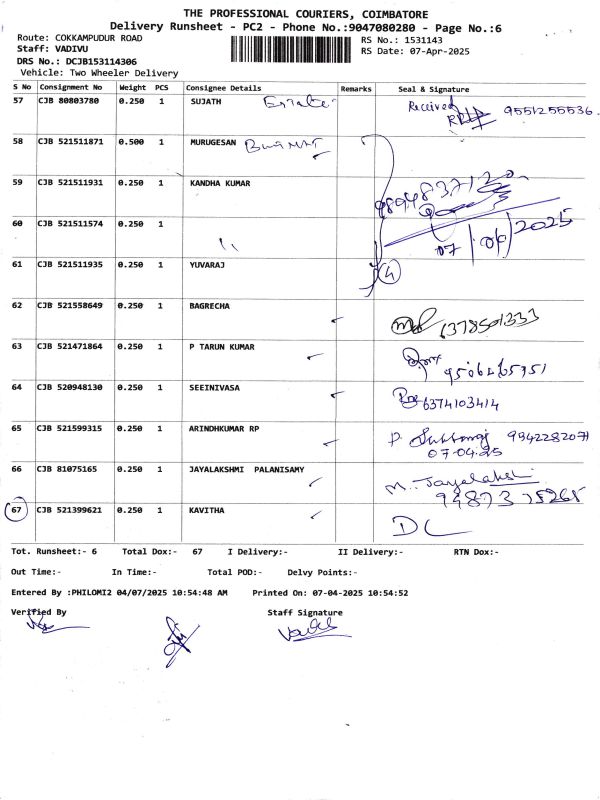 THE PROFESSIONAL COURIERS, COIMBATORE
Delivery Runsheet - PC2 - Phone No.:9047080280 - Page No.:6
Route: COKKAMPUDUR ROAD RS No.: 1531143
Staff: VADIVU RS Date: 07-Apr-2025
DRS No.: DCJB153114306
Vehicle: Two Wheeler Delivery
S No Consignment No Weight PCS Consignee Details Remarks Seal & Signature
57 CJB 80803780 0.250 1 SUJATH Received 9551255536
58 CJB 521511871 0.500 1 MURUGESAN
59 CJB 521511931 0.250 1 KANDHA KUMAR
60 CJB 521511574 0.250 1 07/04/2025
61 CJB 521511935 0.250 1 YUVARAJ 4
62 CJB 521558649 0.250 1 BAGRECHA
63 CJB 521471864 0.250 1 P TARUN KUMAR
64 CJB 520948130 0.250 1 SEEINIVASA 6374103414
65 CJB 521599315 0.250 1 ARINDHKUMAR RP 9942282071
07.04.25
66 CJB 81075165 0.250 1 JAYALAKSHMI PALANISAMY M. Jayalakshmi
67 CJB 521399621 0.250 1 KAVITHA DC
Tot. Runsheet:- 6 Total Dox:- 67 I Delivery:- II Delivery:- RTN Dox:-
Out Time:- In Time:- Total POD:- Delvy Points:-
Entered By :PHILOMI2 04/07/2025 10:54:48 AM Printed On: 07-04-2025 10:54:52
Verified By Staff Signature